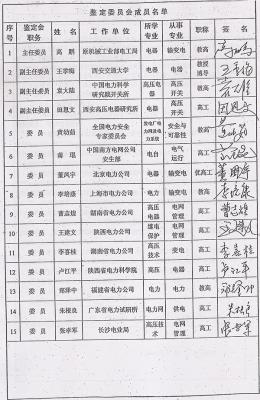 鉴定委员会成员名单
序号 鉴定会职务 姓名 工作单位 所学专业 从事专业 职称 签名
1 主任委员 高鹏 原机械工业部电工局 电器 输变电 教高
2 副主任委员 王季梅 西安交通大学 电器 电器 教授 博导
3 副主任委员 袁大陆 中国电力科学研究院开关所 高压电器 高压开关 教高
4 副主任委员 田恩文 西安高压电器研究所 电器 高压开关 高工 田恩文
5 委员 黄幼茹 全国电力安全专家委员会 安全与可靠性 教高
6 委员 蒋琨 中国南方电网公司安生部 电自 电气运行 高工
7 委员 董凤宇 北京电力公司 电器 输变电 优高工
8 委员 李培盛 上海市电力公司 电力 输变电 教高
9 委员 曹志煌 湖南省电力公司 高压电器 电网管理 高工 曹志煌
10 委员 王建文 陕西电力公司 继电保护 电网管理 高工
11 委员 李喜桂 湖南省电力公司 高压技术 变电 高工 李喜桂
12 委员 卢江平 陕西省电力科学院 高压电器 高压 高工 卢江平
13 委员 郑泽中 福建省电力公司 电力 电力 教高
14 委员 朱根良 广东省电力试研所 电力网 供电 高工 朱根良
15 委员 张卓军 长沙电业局 高压技术 电网管理 高工